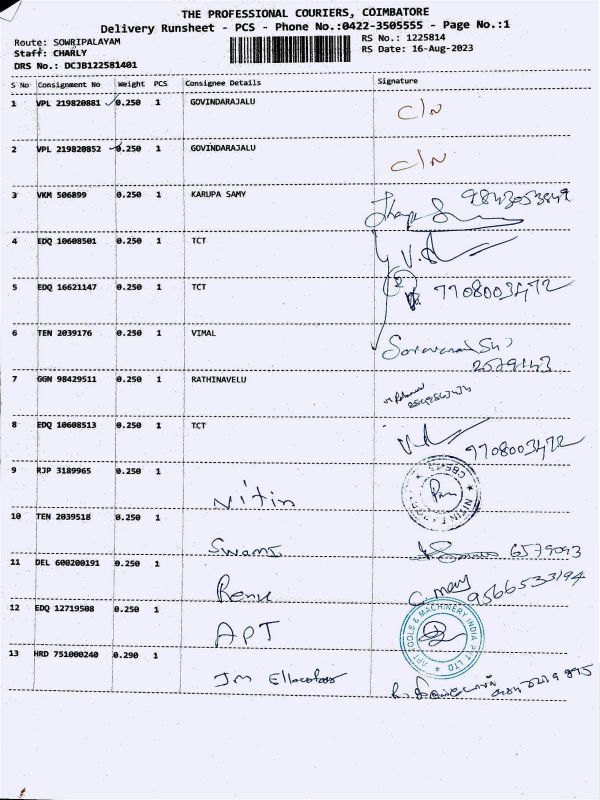 THE PROFESSIONAL COURIERS, COIMBATORE
Delivery Runsheet - PCS - Phone No.:0422-3505555 - Page No.:1
Route: SOWRIPALAYAM RS No.: 1225814
Staff: CHARLY RS Date: 16-Aug-2023
DRS No.: DCJB122581401
S No Consignment No Weight PCS Consignee Details Signature
1 VPL 219820881 0.250 1 GOVINDARAJALU C/N
2 VPL 219820852 0.250 1 GOVINDARAJALU C/N
3 VKM 506899 0.250 1 KARUPA SAMY
4 EDQ 10608501 0.250 1 TCT
5 EDQ 16621147 0.250 1 TCT 7708003472
6 TEN 2039176 0.250 1 VIMAL
2579143
7 GGN 98429511 0.250 1 RATHINAVELU
8 EDQ 10608513 0.250 1 TCT 7708003472
9 RJP 3189965 0.250 1 Nitin
10 TEN 2039518 0.250 1 Swami 6579093
11 DEL 600200191 0.250 1 9566533194
12 EDQ 12719508 0.250 1 APT APT TOOLS & MACHINERY INDIA PVT LTD
13 HRD 751000240 0.290 1 JM